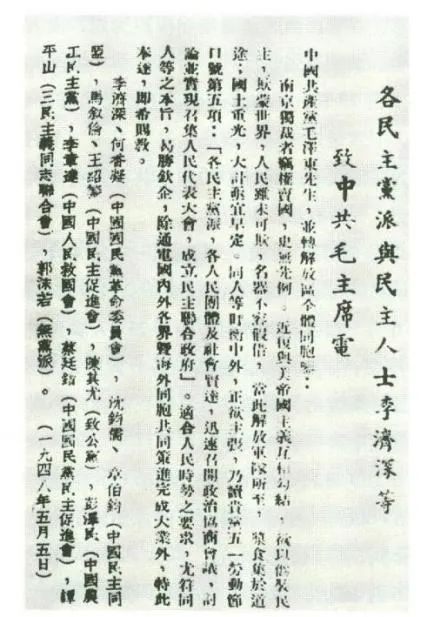 各民主黨派與民主人士李濟深等
致中共毛主席電
中國共產黨毛澤東先生,並轉解放區全體同胞鑒:
南京獨裁者竊權賣國,史無先例。近復與美帝國主義互相勾結,欲以僞裝民
主,欺蒙世界,人民雖未可欺,名器不容假借,當此解放軍隊所至,簞食集於道
途;國土重光,大計亟宜早定。同人等盱衡中外,正欲主張,乃讀貴黨五一勞動節
口號第五項:「各民主黨派,各人民團體及社會賢達,迅速召開政治協商會議,討
論並實現召集人民代表大會,成立民主聯合政府」。適合人民時勢之要求,尤符同
人等之本旨,曷勝欽企,除通電國內外各界暨海外同胞共同策進完成大業外,特此
奉達,即希賜教。
李濟深、何香凝(中國國民黨革命委員會),沈鈞儒、章伯鈞(中國民主同
盟),馬叙倫、王紹鏊(中國民主促進會),陳其尤(致公黨),彭澤民(中國農
工民主黨),李章達(中國人民救國會),蔡廷鍇(中國國民黨民主促進會),譚
平山(三民主義同志聯合會),郭沫若(無黨派)。(一九四八年五月五日)